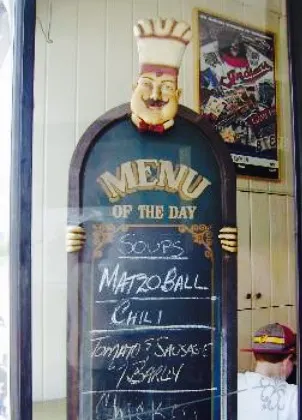 MENU
OF THE DAY
SOUPS
MATZO BALL
CHILI
TOMATO & SAUSAGE
/ BARLEY
Indians